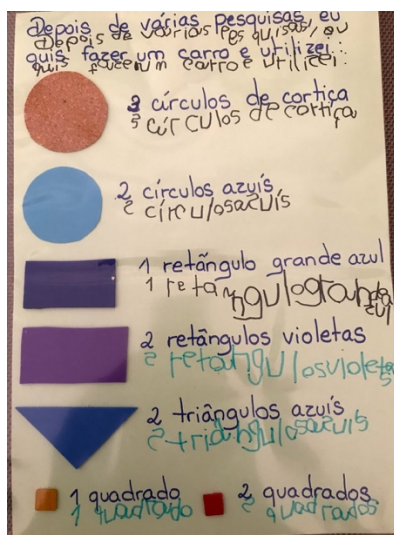 Depois de várias pesquisas, eu
Depois de várias pesquisas, eu
quis fazer um carro e utilizei:
quis fazer um carro e utilizei:
círculos de cortiça
círculos de cortiça
2 círculos azuís
2 círculosazuís
1 retângulo grande azul
1 retangulogrande
azul
2 retângulos violetas
2 retangulosvioletas
2 triângulos azuís
2 triângulosazuís
1 quadrado 2 quadrados
1 quadrado 2 quadrados